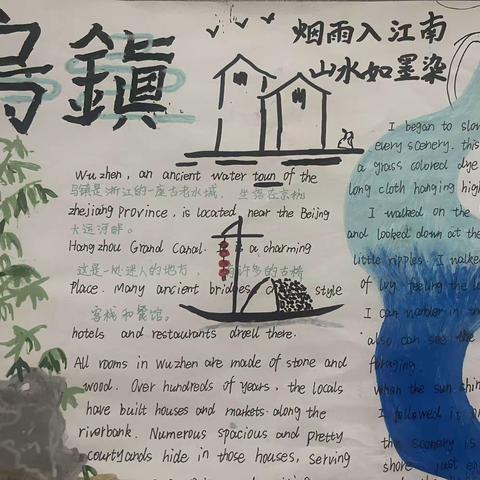 乌鎮
烟雨入江南
山水如墨染
Wuzhen, an ancient water town of the
乌镇是浙江的一座古老水城, 坐落在京杭
zhejiang Province, is located near the Beijing
大运河畔。
Hangzhou Grand Canal. It is a charming
这是一处迷人的地方, 有许多的古桥
Place. Many ancient bridges style
客栈和餐馆。
hotels and restaurants dwell there.
All rooms in Wuzhen are made of stone and
wood. Over hundreds of years, the locals
have built houses and markets along the
riverbank. Numerous spacious and pretty
courtyands hide in those houses, serving
I began to slow
every scenery. this
a grass colored dye
long cloth hanging high
I walked on the
and looked down at the
little ripples. I walked
of Ivy, feeling the
I can wander in the
also can see the
foraging
when the sun shin
I followed it
the scenery is
shore just en